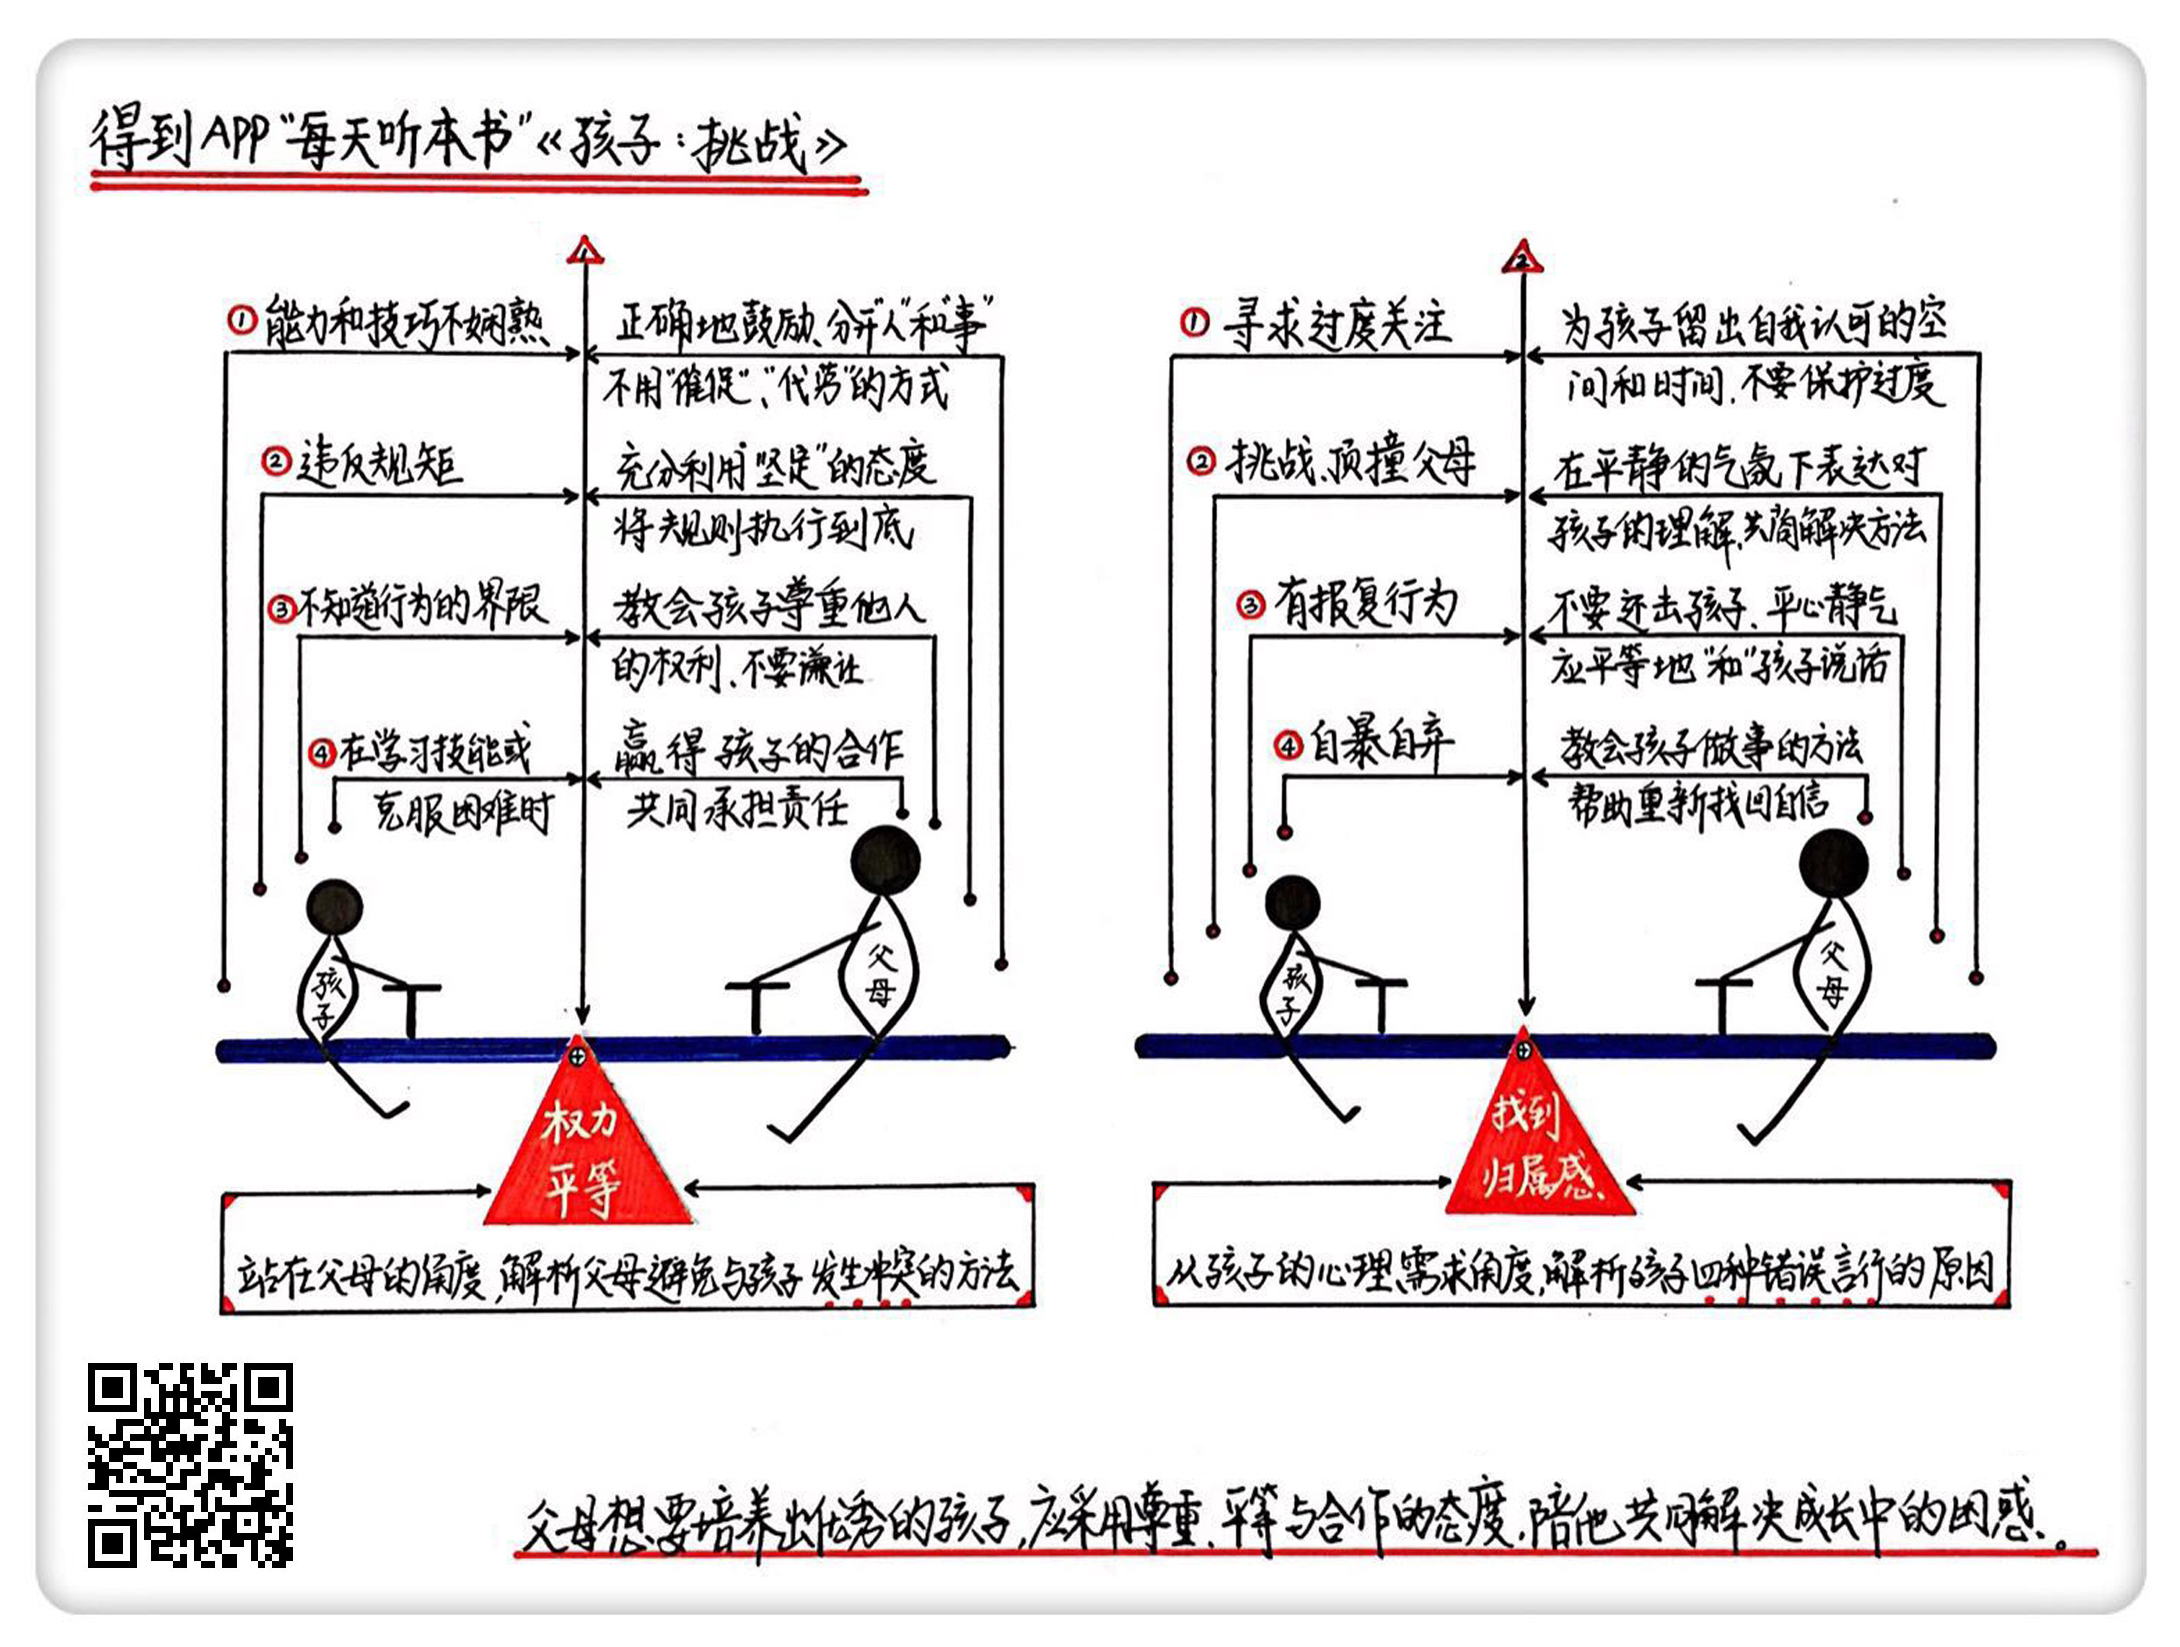 得到APP"每天听本书"《孩子：挑战》
1
①能力和技巧不娴熟
正确地鼓励、分开"人"和"事"
不用"催促"、"代劳"的方式
②违反规矩
充分利用"坚定"的态度
将规则执行到底
③不知道行为的界限
教会孩子尊重他人
的权利、不要谦让
④在学习技能或
克服困难时
赢得孩子的合作
共同承担责任
孩子
父母
权力
平等
站在父母的角度,解析父母避免与孩子发生冲突的方法
2
①寻求过度关注
为孩子留出自我认可的空
间和时间、不要保护过度
②挑战、顶撞父母
在平静的气氛下表达对
孩子的理解、共商解决方法
③有报复行为
不要还击孩子、平心静气
应平等地"和"孩子说话
④自暴自弃
教会孩子做事的方法
帮助重新找回自信
孩子
父母
找到
归属感
从孩子的心理需求角度,解析孩子四种错误言行的原因
父母想要培养出优秀的孩子,应采用尊重、平等与合作的态度,陪他共同解决成长中的困惑。